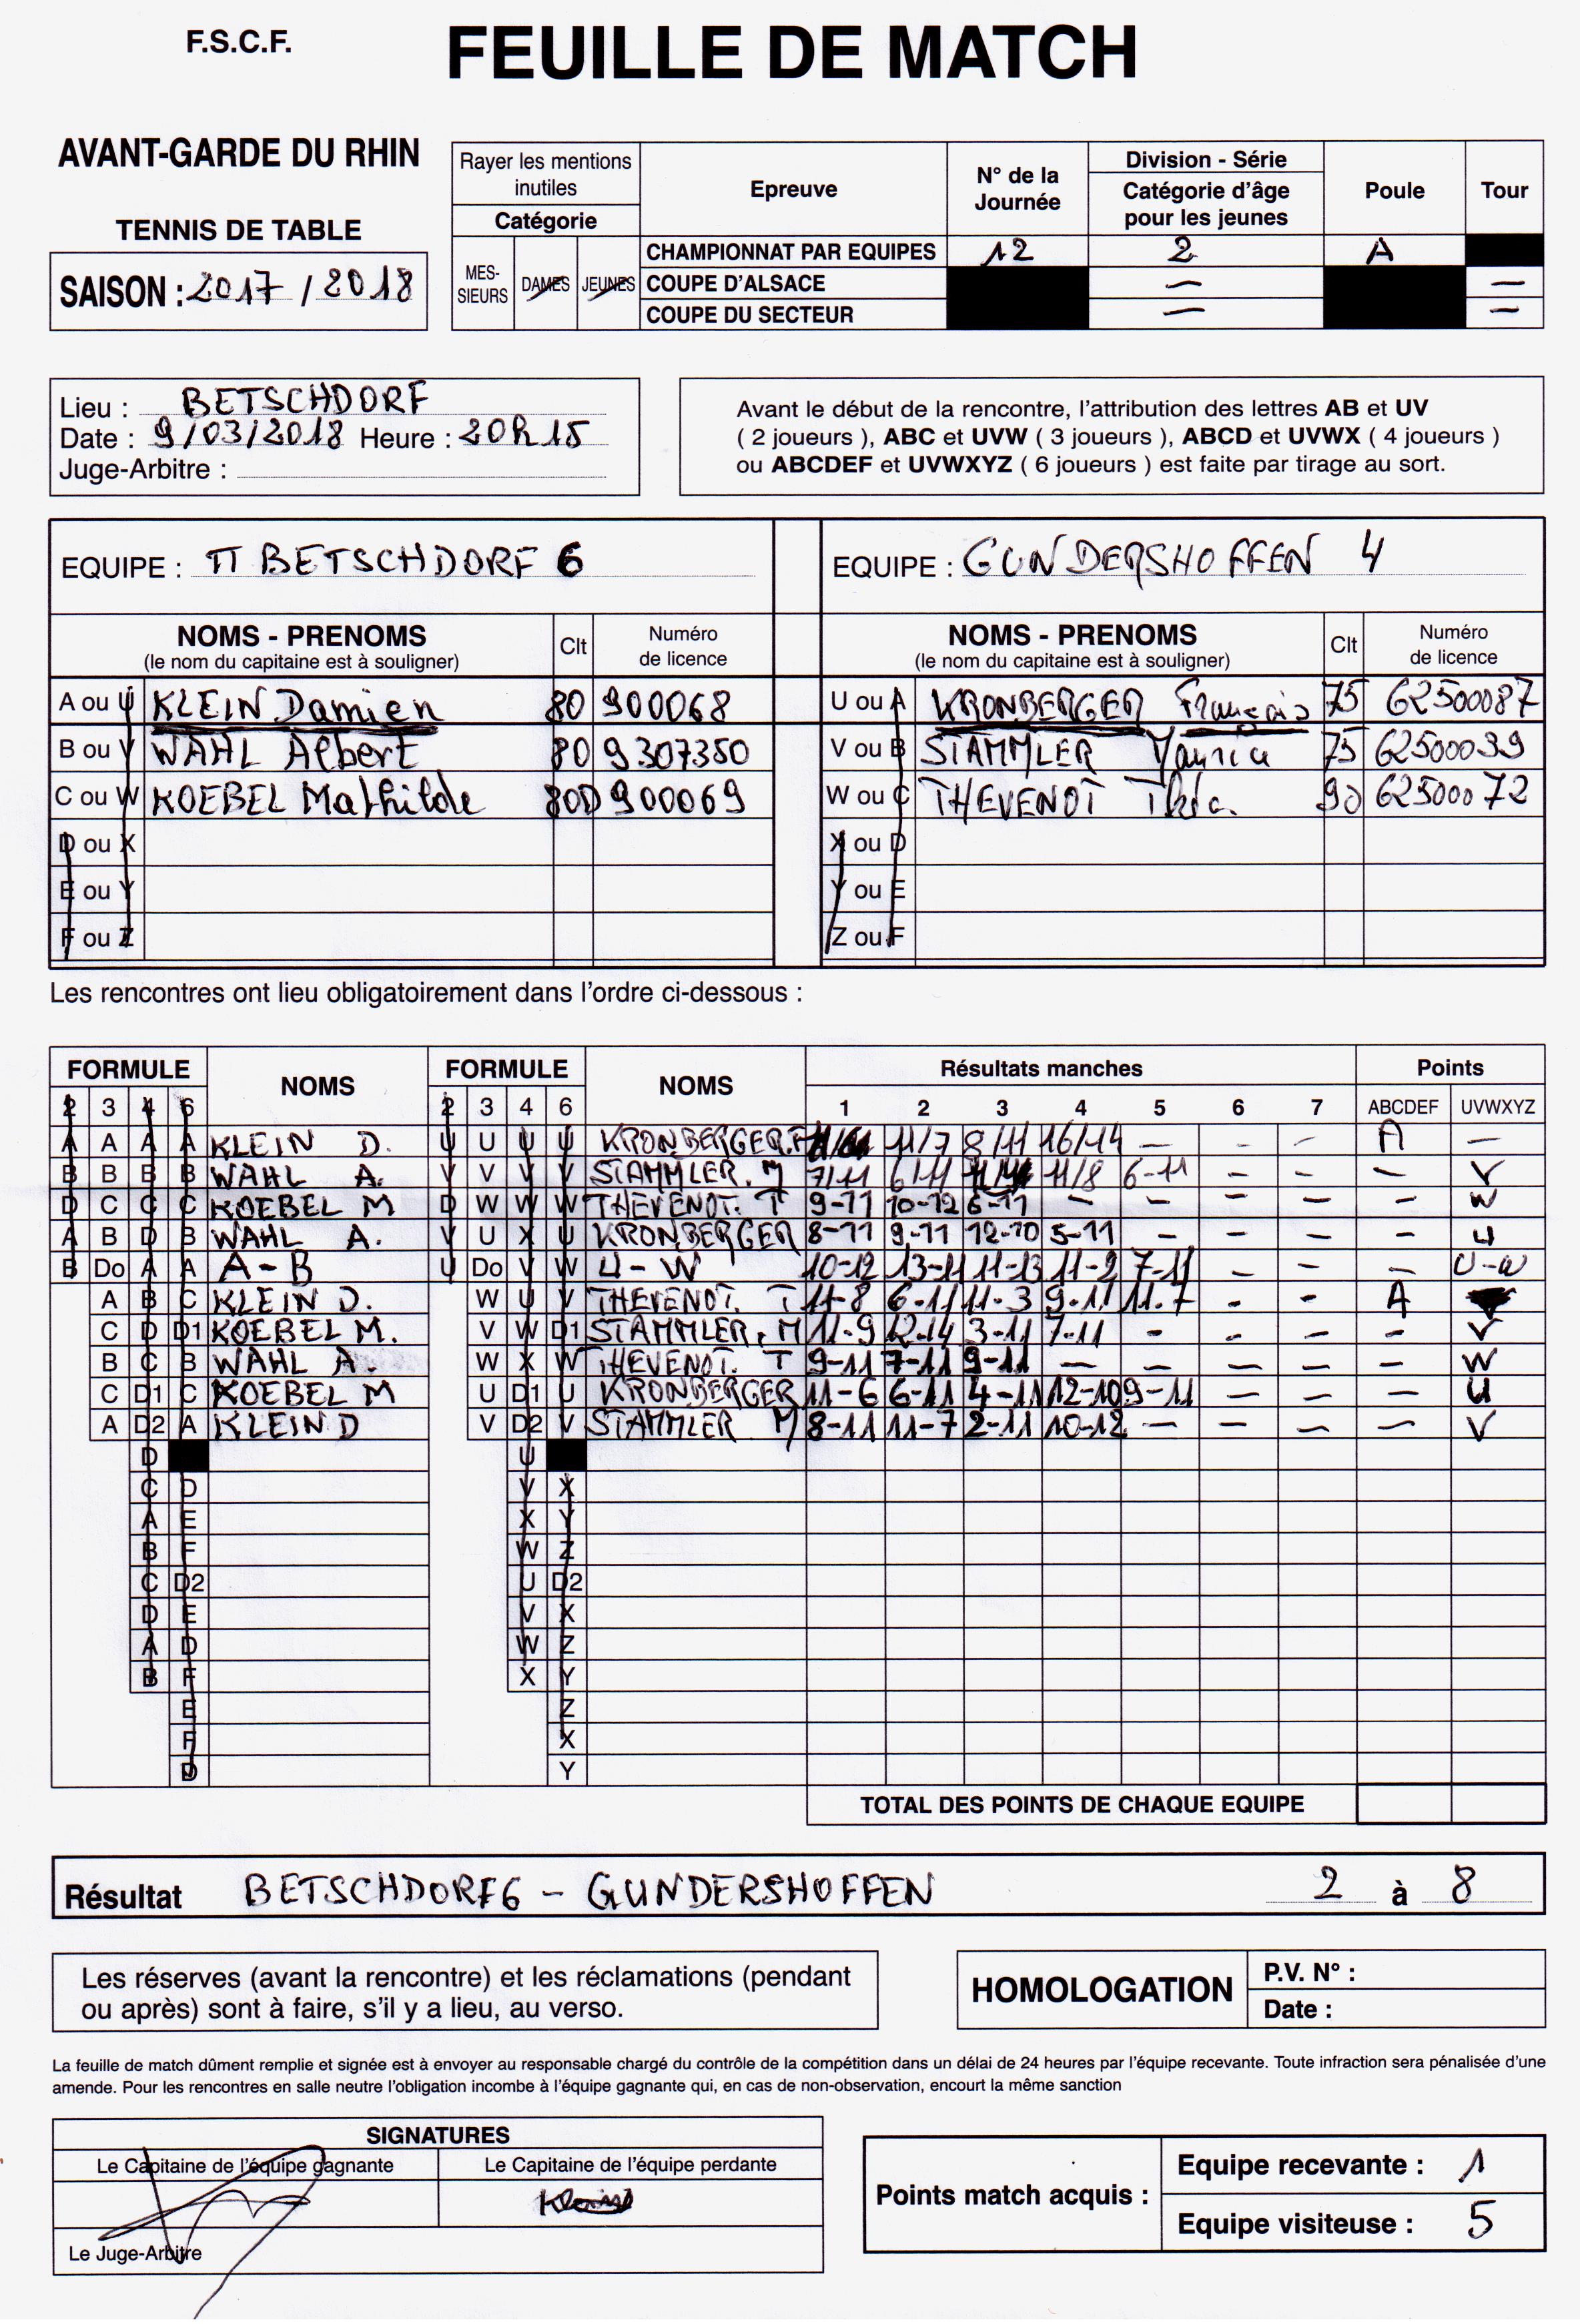 F.S.C.F.
FEUILLE DE MATCH
AVANT-GARDE DU RHIN
TENNIS DE TABLE
SAISON : 2017 / 2018
Rayer les mentions inutiles
Catégorie
MES-SIEURS DAMES JEUNES
Epreuve N° de la Journée Division - Série Catégorie d'âge pour les jeunes Poule Tour
CHAMPIONNAT PAR EQUIPES 12 2 A
COUPE D'ALSACE — —
COUPE DU SECTEUR — —
Lieu : BETSCHDORF
Date : 9/03/2018 Heure : 20h15
Juge-Arbitre :
Avant le début de la rencontre, l'attribution des lettres AB et UV
( 2 joueurs ), ABC et UVW ( 3 joueurs ), ABCD et UVWX ( 4 joueurs )
ou ABCDEF et UVWXYZ ( 6 joueurs ) est faite par tirage au sort.
EQUIPE : TT BETSCHDORF 6
NOMS - PRENOMS Clt Numéro de licence
(le nom du capitaine est à souligner)
A ou U KLEIN Damien 80 900068
B ou V WAHL Albert 80 9307350
C ou W KOEBEL Mathilde 80D 900069
D ou X
E ou Y
F ou Z
EQUIPE : GUNDERSHOFFEN 4
NOMS - PRENOMS Clt Numéro de licence
(le nom du capitaine est à souligner)
U ou A KRONBERGER François 75 62500087
V ou B STAMMLER 75 62500039
W ou C THEVENOT 90 62500072
X ou D
Y ou E
Z ou F
Les rencontres ont lieu obligatoirement dans l'ordre ci-dessous :
FORMULE NOMS FORMULE NOMS Résultats manches Points
2 3 4 6 2 3 4 6 1 2 3 4 5 6 7 ABCDEF UVWXYZ
A A A A KLEIN D. U U U U KRONBERGER.F 11/7 8/11 16/14 — - - A —
B B B B WAHL A. V V V V STAMMLER. M 7/11 6/11 11/8 6-11 - - — V
D C C C KOEBEL M D W W W THEVENOT. T 9-11 10-12 6-11 - - - - - W
A B D B WAHL A. V U X U KRONBERGER 8-11 9-11 12-10 5-11 - - - - U
B Do A A A-B U Do V W U-W 10-12 13-11 11-13 11-2 7-11 - - — U-W
A B C KLEIN D. W U V THEVENOT. T 11-8 6-11 11-3 9-11 11-7 - - A
C D D1 KOEBEL M. V W D1 STAMMLER. M 11-9 12-14 3-11 7-11 - - - - V
B C B WAHL A. W X W THEVENOT. T 9-11 7-11 9-11 — — — — — W
C D1 C KOEBEL M U D1 U KRONBERGER 11-6 6-11 4-11 12-10 9-11 — — — U
A D2 A KLEIN D V D2 V STAMMLER M 8-11 11-7 2-11 10-12 — — — — V
D U
C D V X
A E X Y
B F W Z
C D2 U D2
D E V X
A D W Z
B F X Y
E Z
F X
D Y
TOTAL DES POINTS DE CHAQUE EQUIPE
Résultat BETSCHDORF6 - GUNDERSHOFFEN 2 à 8
Les réserves (avant la rencontre) et les réclamations (pendant
ou après) sont à faire, s'il y a lieu, au verso.
HOMOLOGATION
P.V. N° :
Date :
La feuille de match dûment remplie et signée est à envoyer au responsable chargé du contrôle de la compétition dans un délai de 24 heures par l'équipe recevante. Toute infraction sera pénalisée d'une
amende. Pour les rencontres en salle neutre l'obligation incombe à l'équipe gagnante qui, en cas de non-observation, encourt la même sanction
SIGNATURES
Le Capitaine de l'équipe gagnante Le Capitaine de l'équipe perdante
Le Juge-Arbitre
Points match acquis :
Equipe recevante : 1
Equipe visiteuse : 5